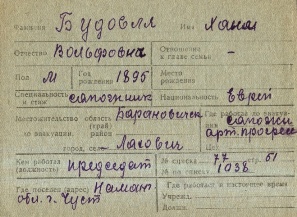 Фамилия Будовля Имя Хана
Отчество Вольфовна Отношение к главе семьи -
Пол М Год рождения 1895 Место рождения
Специальность и стаж сапожник Национальность Еврей
Местожительство до эвакуации. область (край) район Барановичск Где работал до эвакуации сапожн. арт. прогресс
город, село Ляхович
Кем работал (должность) председат № списка 77 стр. 51
№ в списке 1038
Где поселен (адрес) Наман. обл. г. Чуст Где работает в настоящее время
Учрежд.
Должн.